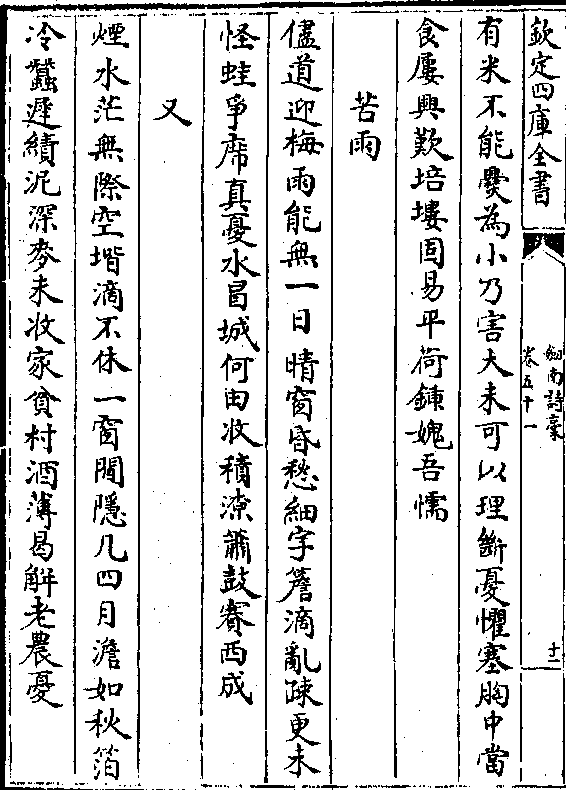 欽定四庫全書
劒南詩稾
卷五十一
十二
有米不能㸑為小乃害大未可以理斷憂懼塞胸中當
食屢興歎培塿固易平荷鍤媿吾懦
苦雨
儘道迎梅雨能無一日晴窗昏愁細字簷滴亂疎更未
怪蛙爭席真憂水冒城何由收積潦簫鼓賽西成
又
煙水茫無際空堦滴不休一窗閒隱几四月澹如秋箔
冷蠶遲績泥深麥未收家貧村酒薄曷解老農憂